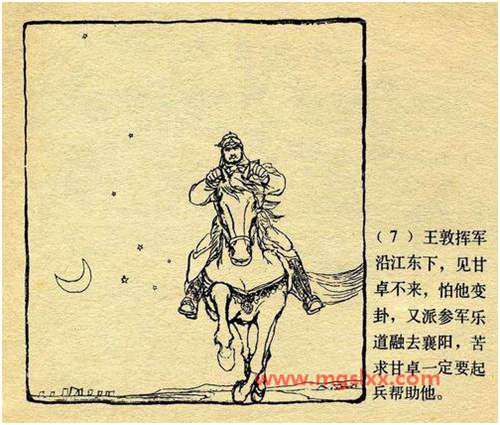 （7）王敦挥军
沿江东下，见甘
卓不来，怕他变
卦，又派参军乐
道融去襄阳，苦
求甘卓一定要起
兵帮助他。
www.mgslxx.com